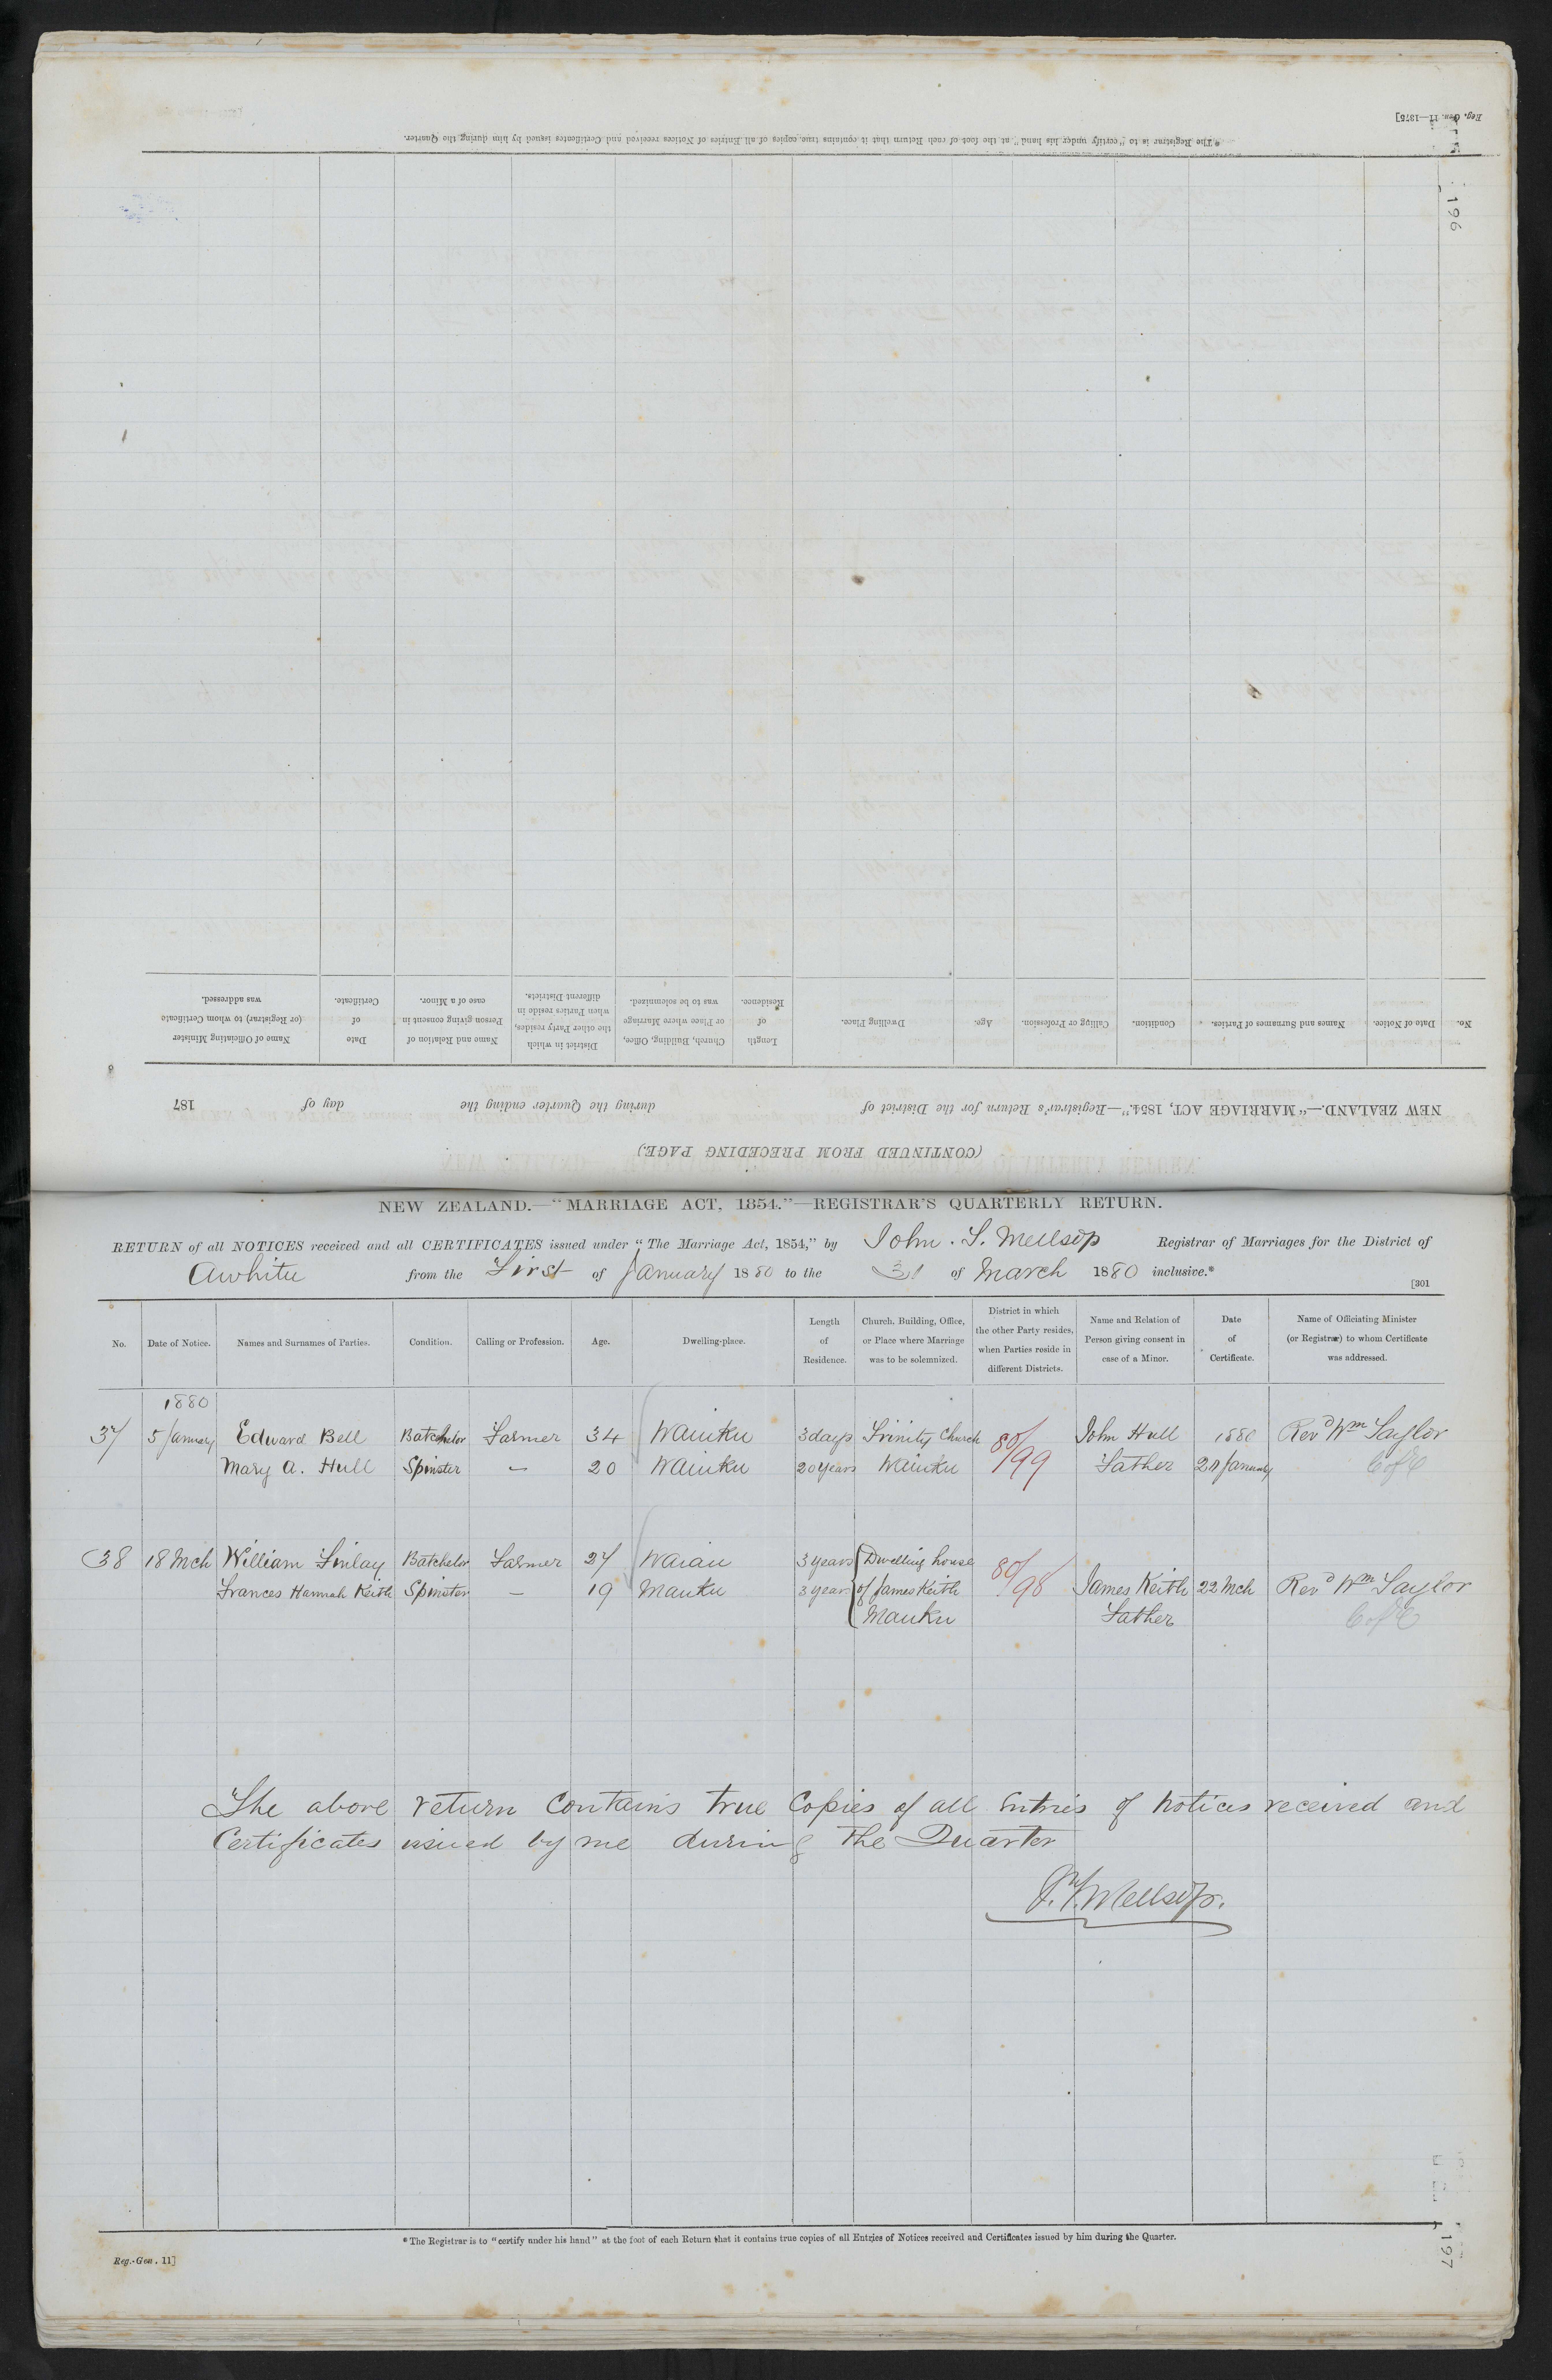 Reg. Gen. 11—1875]
* The Registrar is to "certify under his hand" at the foot of each Return that it contains true copies of all Entries of Notices received and Certificates issued by him during the Quarter.
196
No. Date of Notice. Names and Surnames of Parties. Condition. Calling or Profession. Age. Dwelling Place. Length of Residence. Church, Building, Office, or Place where Marriage was to be solemnized. District in which the other Party resides, when Parties reside in different Districts. Name and Relation of Person giving consent in case of a Minor. Date of Certificate. Name of Officiating Minister (or Registrar) to whom Certificate was addressed.
NEW ZEALAND.—"MARRIAGE ACT, 1854."—Registrar's Return for the District of during the Quarter ending the day of 187
(CONTINUED FROM PRECEDING PAGE.)
NEW ZEALAND.—"MARRIAGE ACT, 1854."—REGISTRAR'S QUARTERLY RETURN.
RETURN of all NOTICES received and all CERTIFICATES issued under "The Marriage Act, 1854," by John. S. Mellsop Registrar of Marriages for the District of
Awhitu from the First of January 1880 to the 31 of March 1880 inclusive.*
[301
No. Date of Notice. Names and Surnames of Parties. Condition. Calling or Profession. Age. Dwelling-place. Length of Residence. Church, Building, Office, or Place where Marriage was to be solemnized. District in which the other Party resides, when Parties reside in different Districts. Name and Relation of Person giving consent in case of a Minor. Date of Certificate. Name of Officiating Minister (or Registrar) to whom Certificate was addressed.
1880
37 5 January Edward Bell Batchelor Farmer 34 Waiuku 3 days Trinity Church 80/99 John Hull 1880 Revd Wm Taylor
Mary A. Hull Spinster — 20 Waiuku 20 years Waiuku Father January C of E
38 18 Mch William Finlay Batchelor Farmer 27 Waiau 3 years Dwelling house 80/98
Frances Hannah Keith Spinster — 19 Mauku 3 years of James Keith James Keith 22 Mch Revd Wm Taylor
Mauku Father C of E
The above return contains true copies of all Entries of Notices received and
Certificates issued by me during the Quarter
Mellsop.
* The Registrar is to "certify under his hand" at the foot of each Return that it contains true copies of all Entries of Notices received and Certificates issued by him during the Quarter.
Reg.-Gen. 11]
197